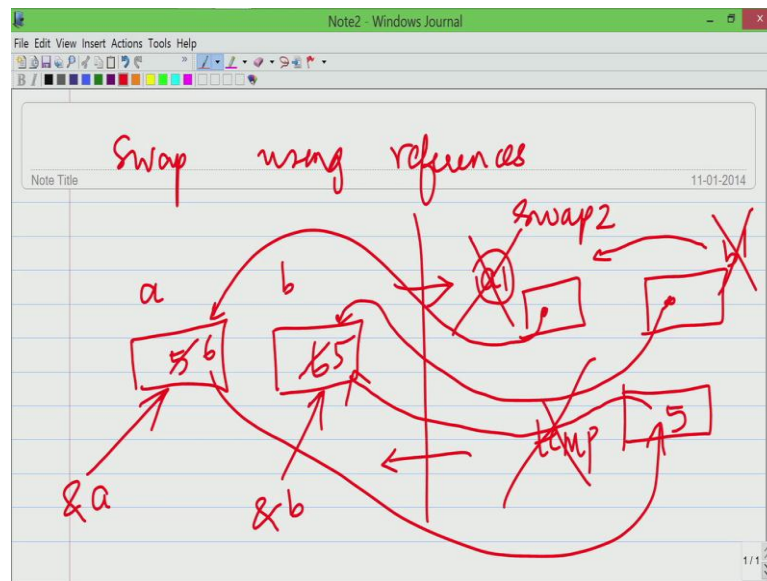 Note2 - Windows Journal
File Edit View Insert Actions Tools Help
B I
Swap using references
Note Title
11-01-2014
swap2
a b a1 b1
5 6 6 5
temp 5
&a &b
1/1